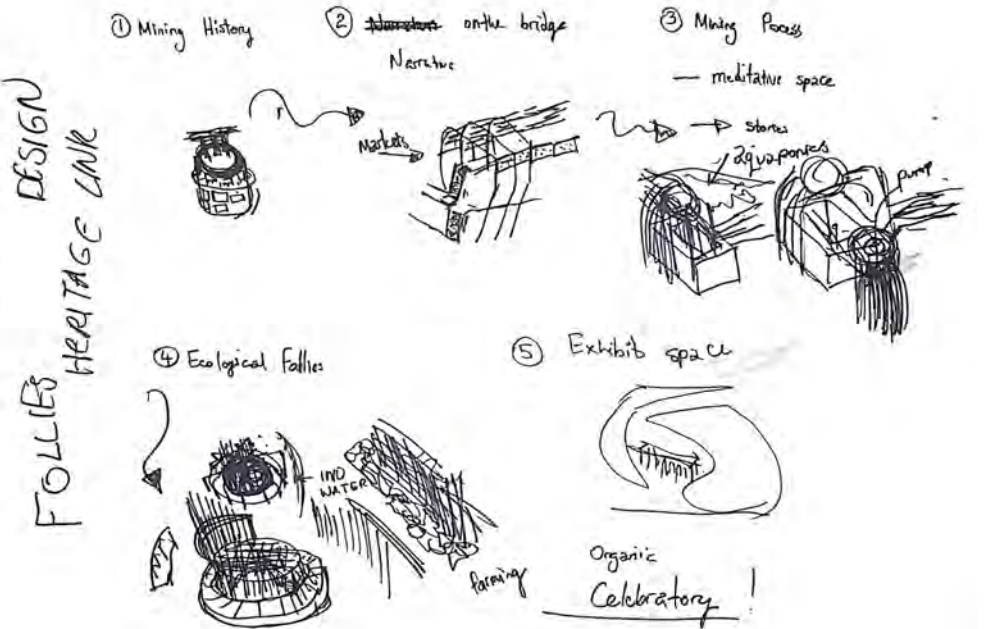 FOLLIES DESIGN
HERITAGE LINK
① Mining History
② Narration on the bridge
Narrative
Markets
③ Mining Process
— meditative space
→ stories
aquaponics
pump
④ Ecological Follies
WATER
farming
⑤ Exhibit space
Organic
Celebratory !